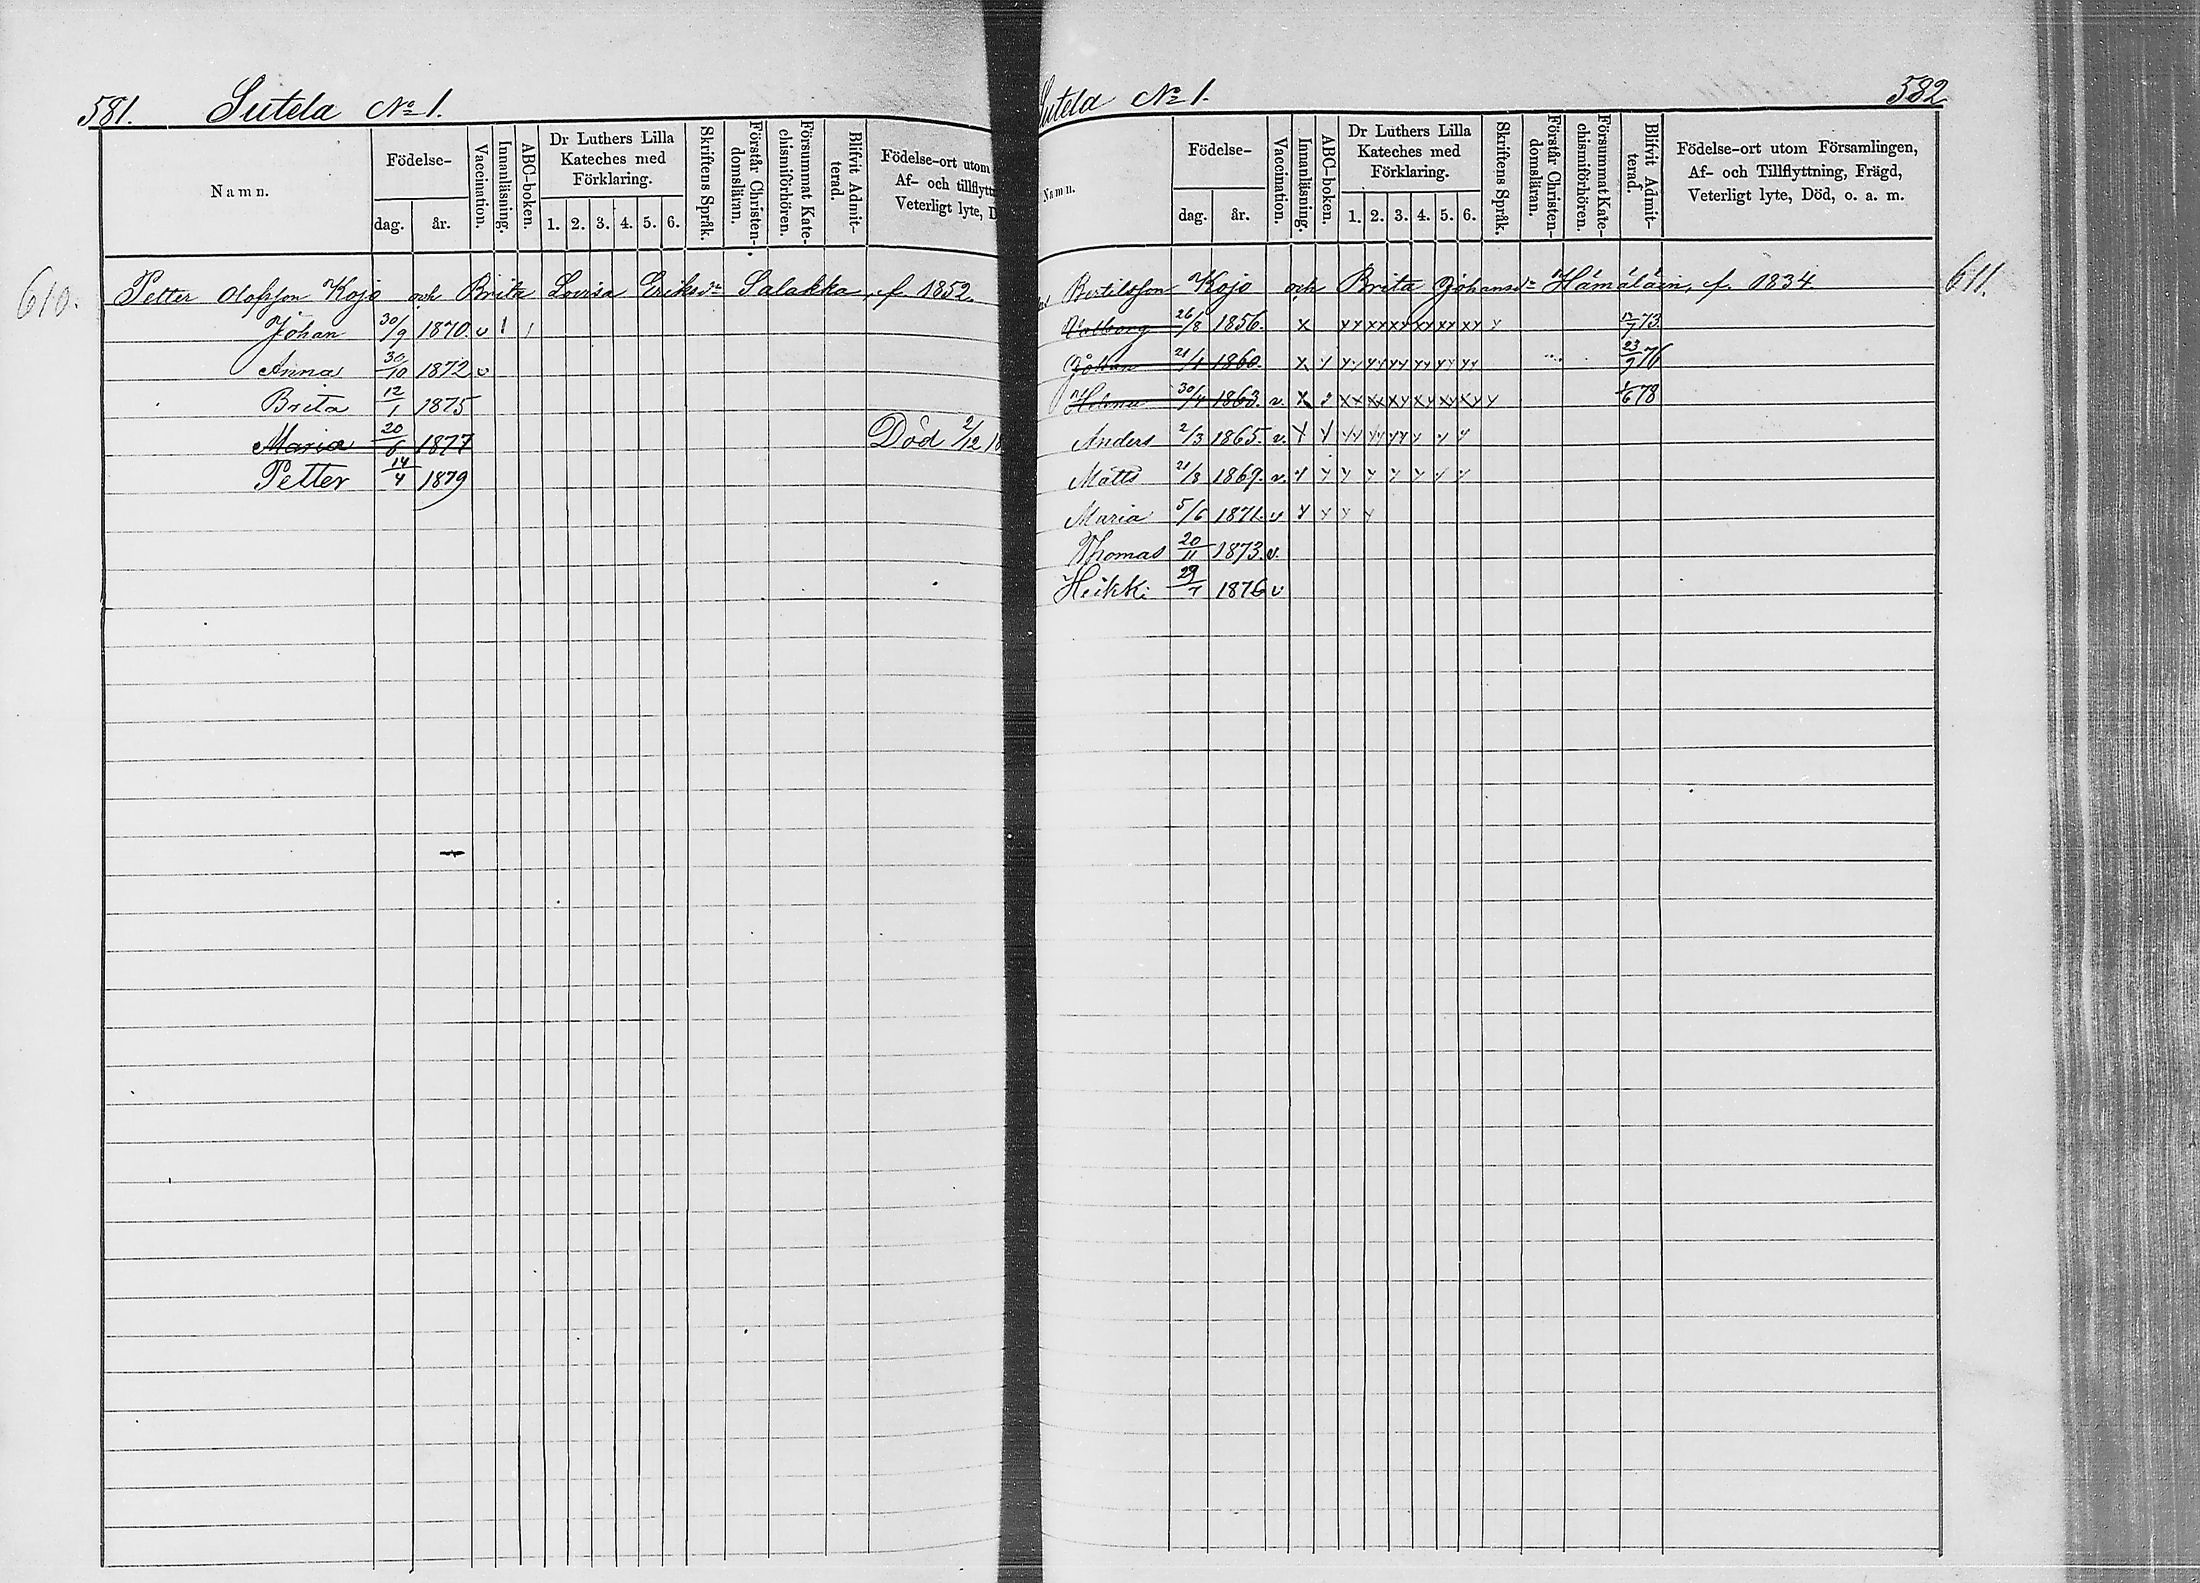 581. Sutela № 1.
Namn.
Födelse-
dag. år.
Vaccination.
Innanläsning.
ABC-boken.
Dr Luthers Lilla
Kateches med
Förklaring.
1. 2. 3. 4. 5. 6.
Skriftens Språk.
Förstår Christen-
domsläran.
Försummat Kate-
chismiförhören.
Blifvit Admit-
terad.
Födelse-ort utom
Af- och tillflyttn
Veterligt lyte, D
610. Petter Olofsson Kojo och Brita Lovisa Eriksdr Salakka, f. 1852.
Johan 30/9 1870. v 1 1
Anna 30/10 1872 v
Brita 12/1 1875
Maria 20/6 1877 Död 2/12 18
Petter 14/4 1879
utela № 1. 582
Namn.
Födelse-
dag. år.
Vaccination.
Innanläsning.
ABC-boken.
Dr Luthers Lilla
Kateches med
Förklaring.
1. 2. 3. 4. 5. 6.
Skriftens Språk.
Förstår Christen-
domsläran.
Försummat Kate-
chismiförhören.
Blifvit Admit-
terad.
Födelse-ort utom Församlingen,
Af- och Tillflyttning, Frägd,
Veterligt lyte, Död, o. a. m.
Bertilsson Kojo och Brita Johansdr Hämäläin, f. 1834. 611.
Valborg 26/8 1856. x xx xx xx xx xx xx y 73.
Johan 21/1 1860. x y yy yy yy yy yy yy 23/9 76
Helena 30/4 1863. v. x xx xx xy xy xy xy y 1/6 78
Anders 2/3 1865. v. y y yy yy yy y y y
Matts 21/8 1869. v. y y y y y y y y
Maria 5/6 1871. v y y y y
Thomas 20/11 1873. v.
Heikki 29/1 1876 v